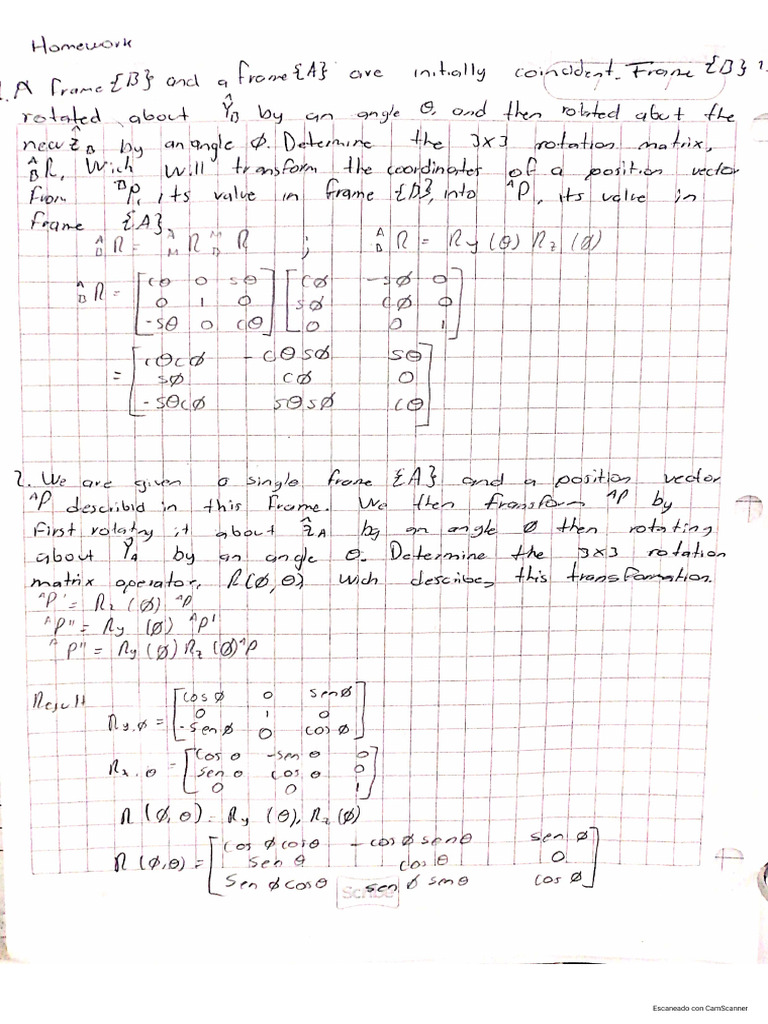 Homework
1. A frame {B} and a frame {A} are initially coincident. Frame {B} 1.
rotated about Ŷ_B by an angle θ, and then rotated about the
new Ẑ_B by an angle Ø. Determine the 3x3 rotation matrix,
^A_B R, Wich will transform the coordinates of a position vector
from ^B P, its value in frame {B}, into ^A P, its value in
frame {A}.
^A_B R = ^A_M R ^M_B R ; ^A_B R = Ry (θ) Rz (Ø)
^A_B R = [cθ 0 sθ] [cØ -sØ 0]
[0 1 0] [sØ cØ 0]
[-sθ 0 cθ] [0 0 1]
= [cθcØ -cθsØ sθ]
[sØ cØ 0]
[-sθcØ sθsØ cθ]
2. We are given a single frame {A} and a position vector
^A P describid in this frame. We then transform ^A P by
first rotatny it about Ẑ_A by an angle Ø then rotating
about Ŷ_A by an angle θ. Determine the 3x3 rotation
matrix operator, R(Ø,θ) wich describes this transformation.
^A P' = Rz (Ø) ^A P
^A P'' = Ry (Ø) ^A P'
^A P'' = Ry (Ø) Rz (Ø) ^A P
Result
Ry.Ø = [cos Ø 0 senØ]
[0 1 0]
[-sen Ø 0 cos Ø]
Rz.θ = [cos θ -sen θ 0]
[sen θ cos θ 0]
[0 0 1]
R (Ø,θ) = Ry (θ), Rz (Ø)
R (Ø,θ) = [cos Ø cosθ -cosØ senθ sen Ø]
[sen θ cos θ 0]
[Sen Ø cosθ sen Ø senθ cos Ø]
Scribe
Escaneado con CamScanner